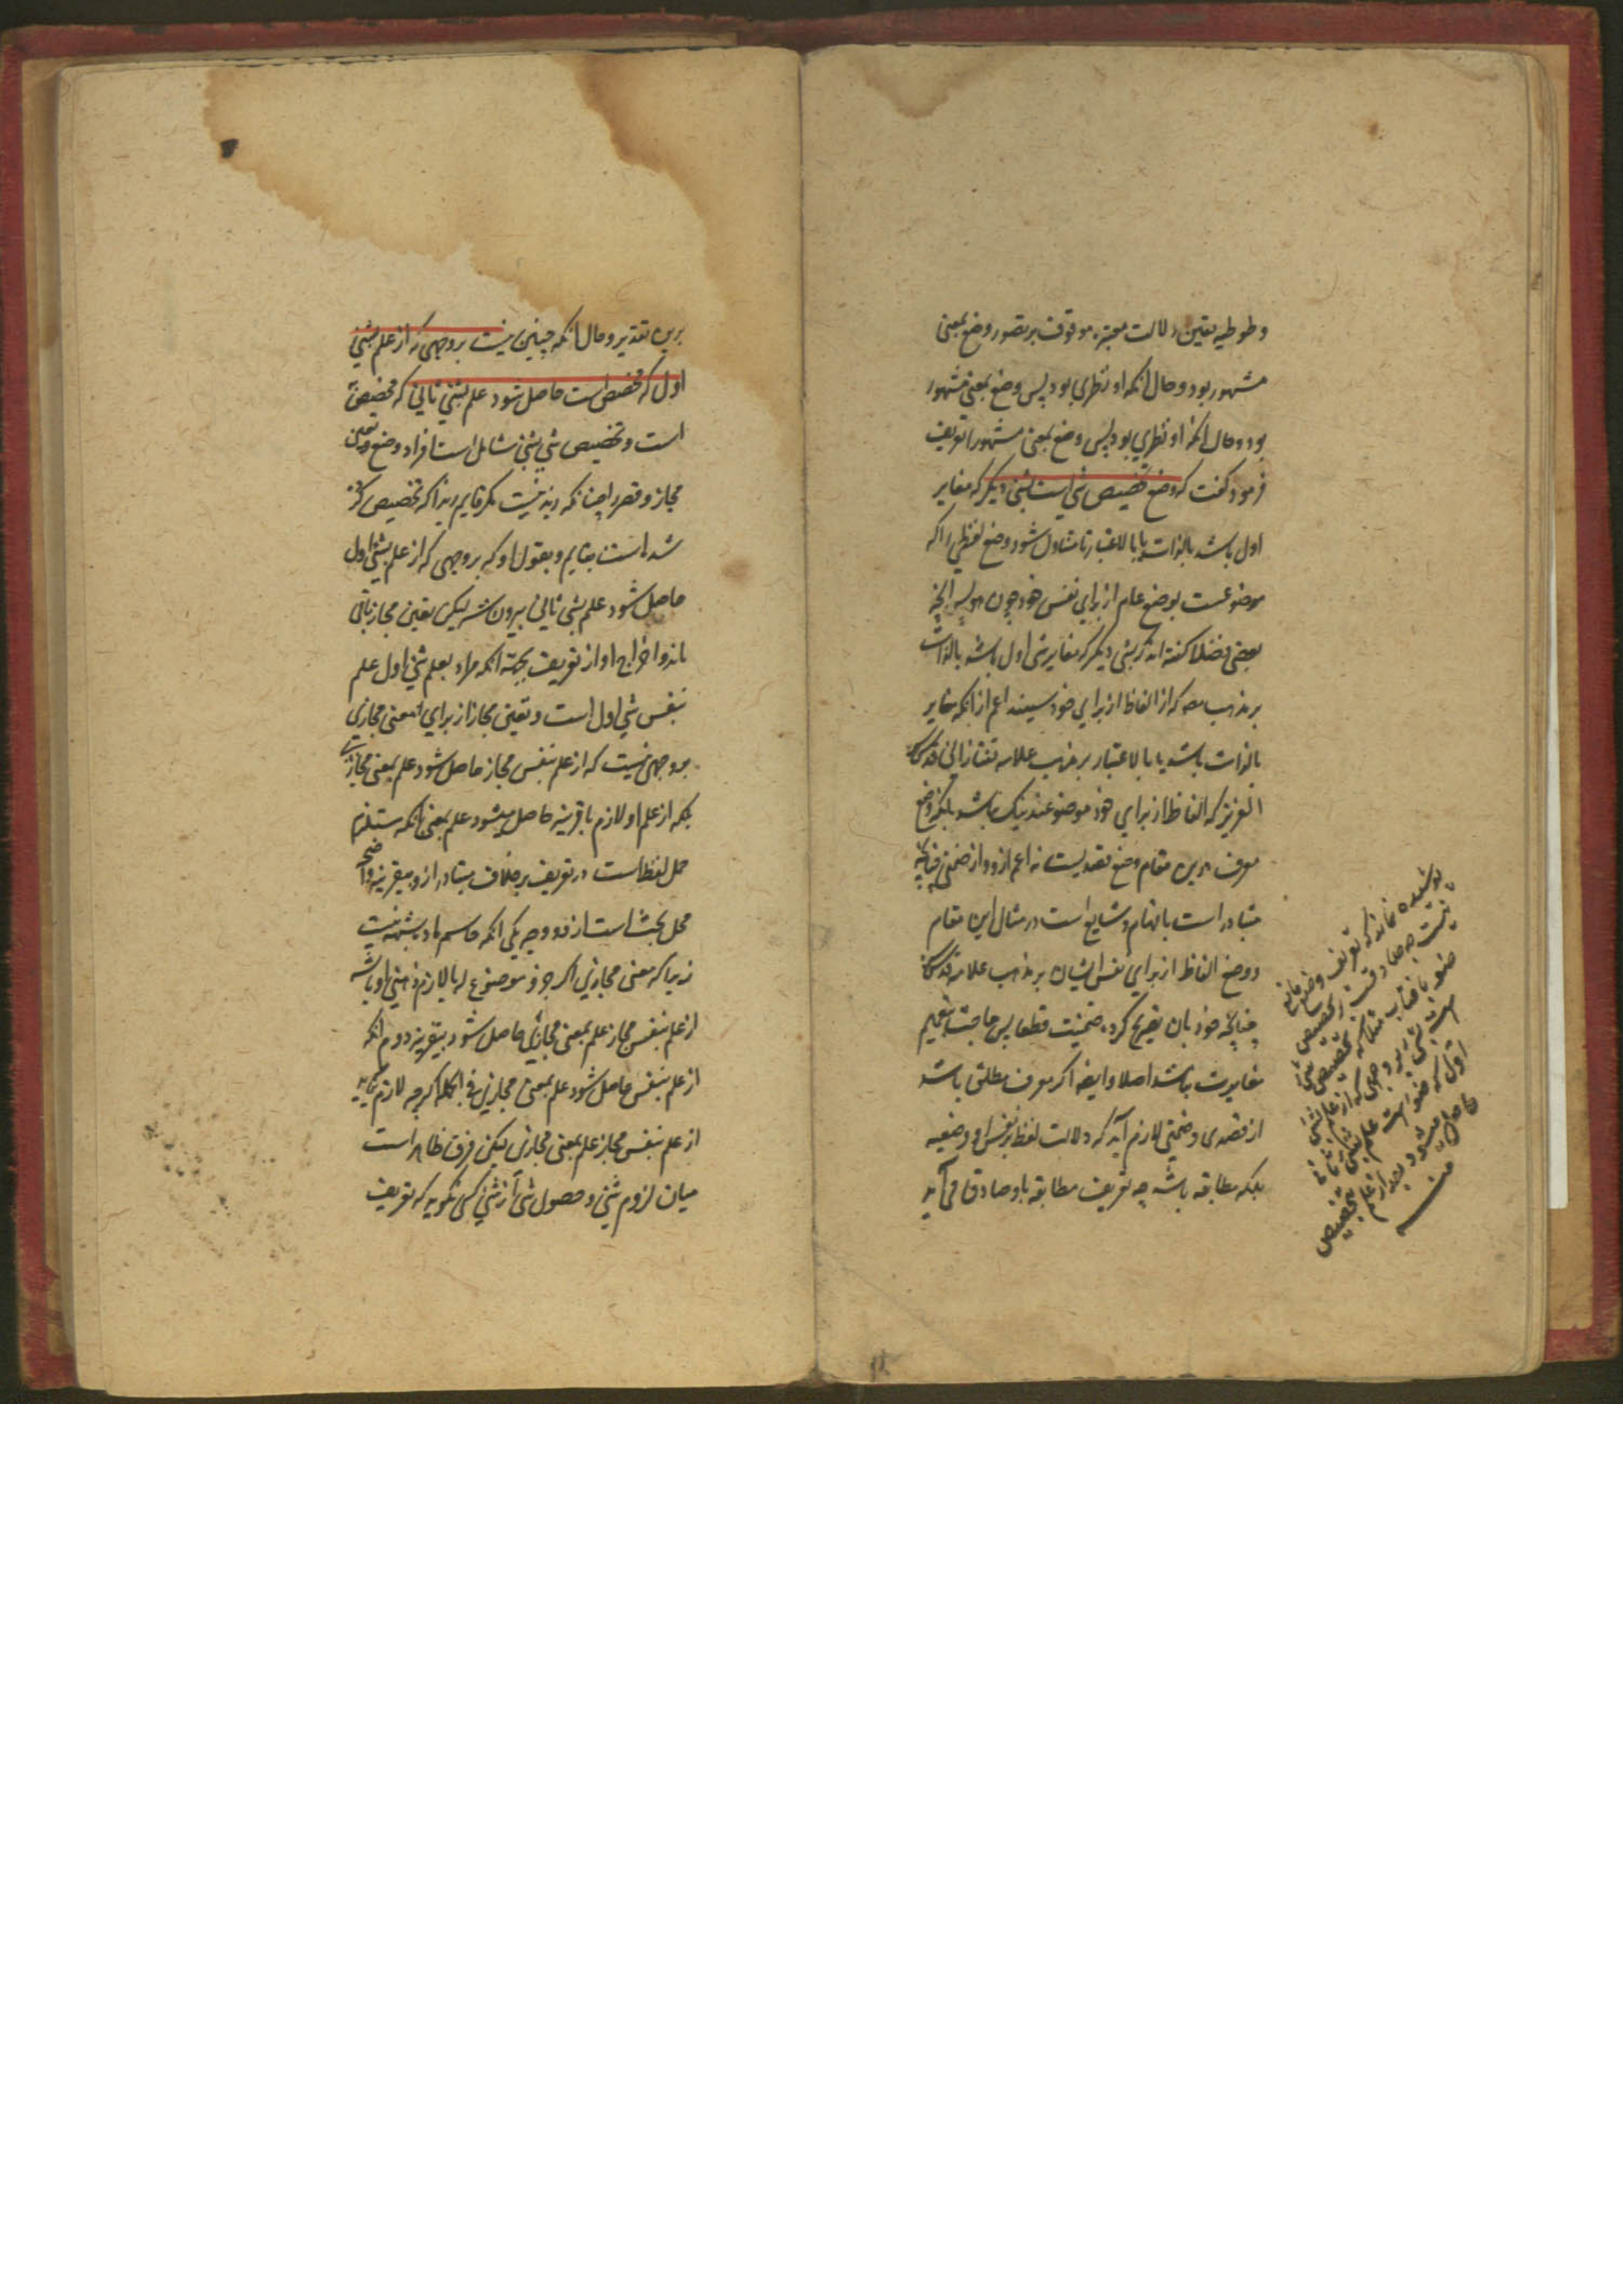 و طوطیه یقین دلالت معتبره موقوف بر تصور وضع بمعنی
مشهور بود و حال آنکه او نظری بود پس وضع بمعنی مشهور
بود و حال آنکه او نظری بود پس وضع بمعنی مشهور را تعریف
فرمود و گفت که وضع تخصیص شی است بشی دیگر که مغایر
اول باشد بالذات یا بالاعتبار تا متناول شود وضع لفظی را که
موضوعست بوضع علم از برای نفس خود چون
بعضی فضلا گفته اند که بشی دیگر که مغایر شی اول باشد بالذات
بر مذهب که از الفاظ از برای خود نیستند اعم از آنکه مغایر
بالذات باشد یا بالاعتبار بر مذهب علامه تفتازانی قدس
العزیز که الفاظ از برای خود موضوعند نیک باشد بلکه وضع
معرف درین مقام وضع قصدیست نه اعم ازو و از ضمنی چنانچه
متبادر است بافهام و شایع است در مثال این مقام
و وضع الفاظ از برای نفس ایشان بر مذهب علامه قدس
چنانچه خود بان تصریح کرده ضمنیست قطعا پس حاجت بتعمیم
مغایرت نباشد اصلا و ایضا اگر معرف مطلق باشد
از قصدی و ضمنی لازم آید که دلالت لفظ بر نفس او وضعیه
بلکه مطابقه باشد چه تعریف مطابقه باو صادق می آید
پوشیده نماند که تعریف وضع مانع
نیست چه صادقست بر تخصیص شی
اول که است علم بشی ثانی
حاصل میشود بعد از علم بتخصیص
منه
برین تقدیر و حال آنکه چنین نیست بر وجهی که از علم بشی
اول که مخصص است حاصل شود علم بشی ثانی که مخصص
است و تخصیص شی بشی شامل است افراد وضع و تعین
مجاز و قصر را چنانکه زید نیست مگر قایم زیرا که تخصیص کرده
شده است بقایم و بقول او که بر وجهی که از علم بشی اول
حاصل شود علم بشی ثانی بیرون شد لیکن تعین مجاز باقی
ماند و اخراج او از تعریف بجهة آنکه مراد بعلم شی اول علم
بنفس شی اول است و تعین مجاز از برای معنی مجازی
بر وجهی نیست که از علم بنفس مجاز حاصل شود علم بمعنی مجازی
بلکه از علم او لازم با قرینه حاصل میشود علم بمعنی آنکه مستلزم
حمل لفظ است در تعریف بر خلاف متبادر ازو بیقرینه واضحه
محل بحث است از دو وجه یکی آنکه حاسم ماده شبهه نیست
زیرا که معنی مجازی اگر جزو موضوع له یا لازم ذهنی او باشد
از علم بنفس مجاز علم بمعنی مجازی حاصل شود بیقرینه دوم آنکه
از علم بنفس حاصل شود علم بمعنی مجازی فی الجمله اگرچه لازم نیاید
از علم بنفس مجاز علم بمعنی مجازی لیکن فرق ظاهر است
میان لزوم شی و حصول شی از شی کسی نگوید که تعریف